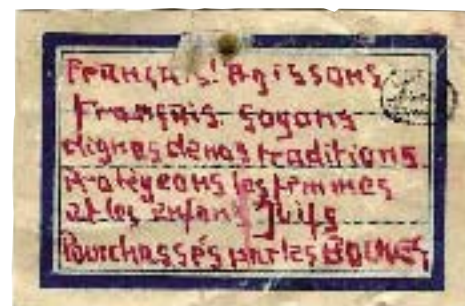 Français! Agissons
Français soyons
dignes de nos traditions
Protégeons les femmes
et les enfans Juifs
Pourchassés par les BOCHES